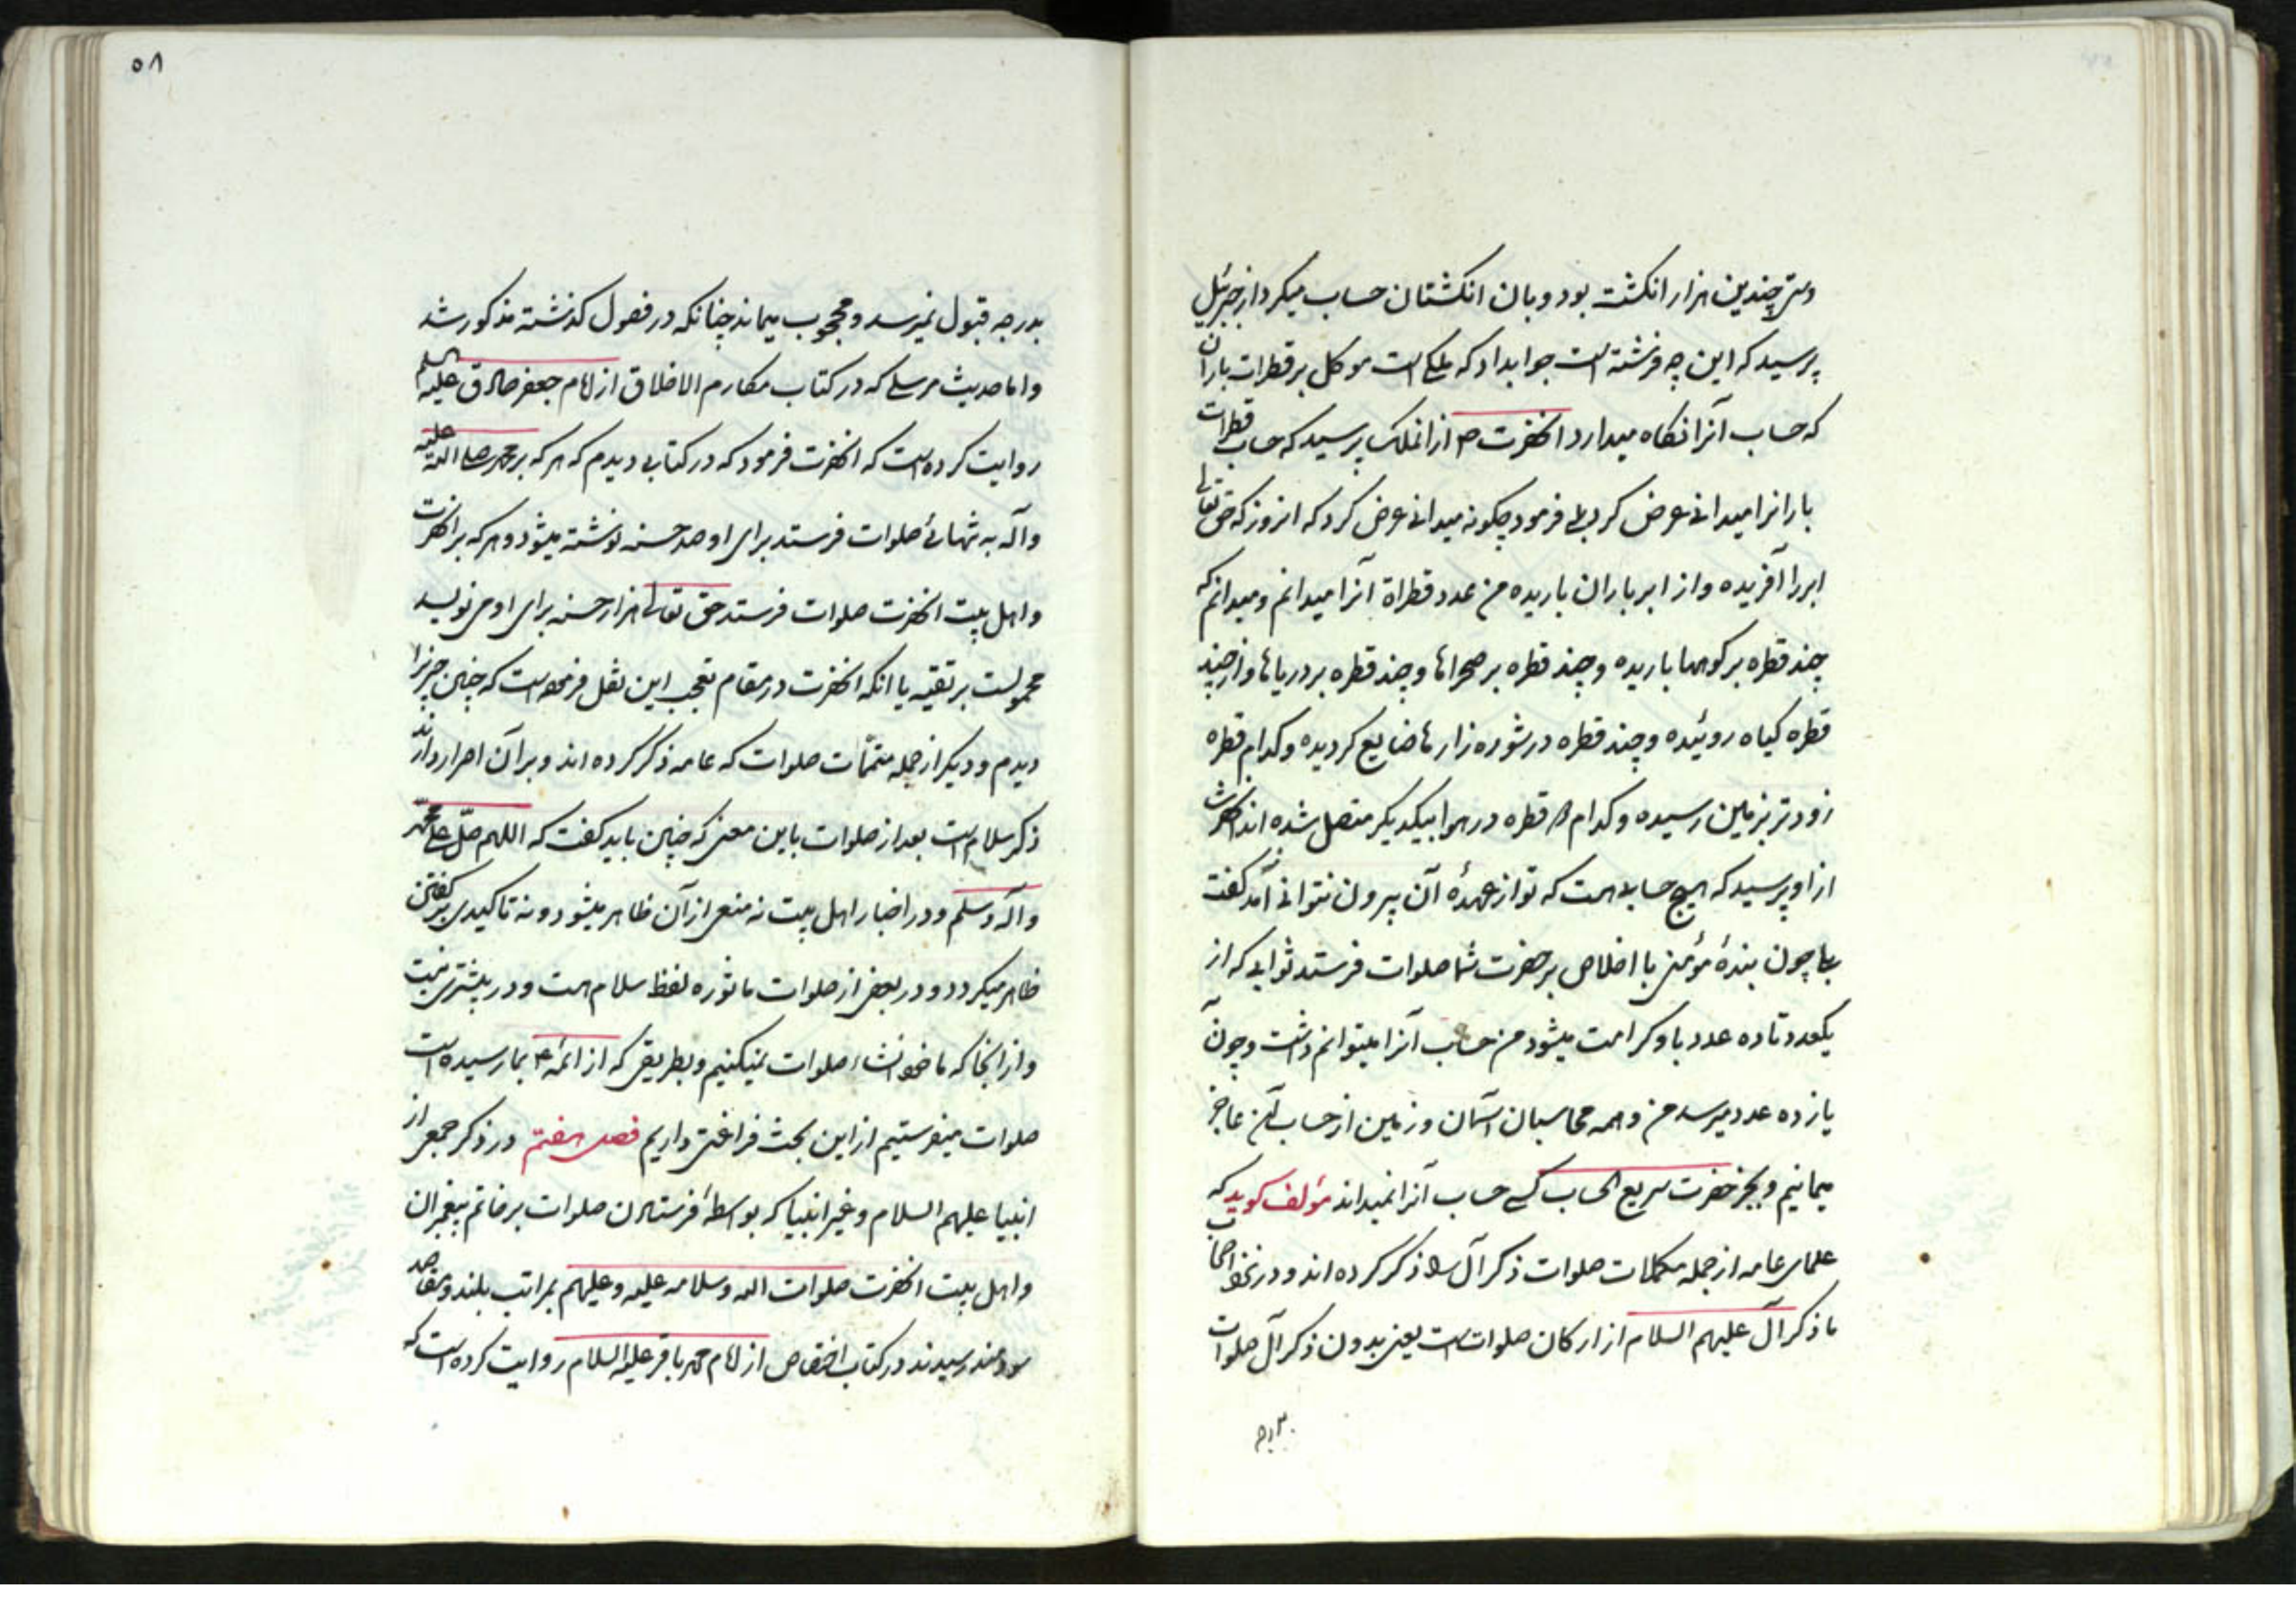 دستش چندین هزار انکشت بود و بان انکشتان حساب میکرد از جبرئیل
پرسید که این چه فرشته است جوابداد که ملکی است موکل بر قطرات باران
که حساب آنرا نکاه میدارد انحضرت ص ازانملک پرسید که حساب قطرات
بارانرا میدانی عرض کرد بلی فرمود چکونه میدانی عرض کرد که از روز که حق تعالی
ابر را آفریده و از ابر باران باریده من عدد قطراة آنرا میدانم و میدانم که
چند قطره بر کوهها باریده و چند قطره بر صحراها و چند قطره بر دریاها و از چند
قطره کیاه روئیده و چند قطره در شوره زارها ضایع کردیده و کدام قطره
زودتر بزمین رسیده و کدام قطره در هوا بیکدیکر متصل شده اند انحضرت
از او پرسید که هیچ حسابی هست که تو از عهدهٔ آن بیرون نتوانی آمد کفت
بلی چون بندهٔ مؤمنی با اخلاص بر حضرت شما صلوات فرستد ثوابی که از
یکعدد تا ده عدد باو کرامت میشود من حساب آنرا میتوانم دانست و چون
یازده عدد میرسد من و همه محاسبان آسمان و زمین از حساب آن عاجز
میمانیم و بجز حضرت سریع الحساب کسی حساب آنرا نمیداند مؤلف کوید که
علمای عامه از جمله مکملات صلوات ذکر آل را ذکر کرده اند و در نزد اصحاب
ما ذکر آل علیهم السلام از ارکان صلوات است یعنی بدون ذکر آل صلوات
بدرجه
٥٨
بدرجه قبول نمیرسد و محجوب میماند چنانکه در فصول کذشته مذکور شد
و اما حدیث مرسلی که در کتاب مکارم الاخلاق از امام جعفر صادق علیه السلم
روایت کرده است که انحضرت فرمود که در کتابی دیدم که هر که بر محمد صلی الله علیه
و آله به تنهائی صلوات فرستد برای او صد حسنه نوشته میشود و هر که بر انحضرت
و اهل بیت انحضرت صلوات فرستد حق تعالی هزار حسنه برای او می نویسد
محمولست بر تقیه یا انکه انحضرت در مقام تعجب این نقل فرموده است که چنین چیزیرا
دیدم و دیکر از جمله متممّات صلوات که عامه ذکر کرده اند و بر آن اصرار دارند
ذکر سلام است بعد از صلوات باین معنی که چنین باید کفت که اللهم صلّ علی محمّد
و آله و سلم و در اخبار اهل بیت نه منعی از آن ظاهر میشود و نه تاکیدی بر کفتن
ظاهر میکردد و در بعضی از صلوات ماثوره لفظ سلام هست و در بیشتری نیست
و از انجا که ما خود انشاء صلوات نمیکنیم و بطریقی که از ائمه ع بما رسیده است
صلوات میفرستیم از این بحث فراغتی داریم فصل هفتم در ذکر جمعی از
انبیا علیهم السلام و غیر انبیا که بواسطهٔ فرستادن صلوات بر خاتم پیغمبران
و اهل بیت انحضرت صلوات الله و سلامه علیه و علیهم بمراتب بلند و مقاصد
سودمند رسیدند در کتاب اختصاص از امام محمد باقر علیه السلام روایت کرده است که